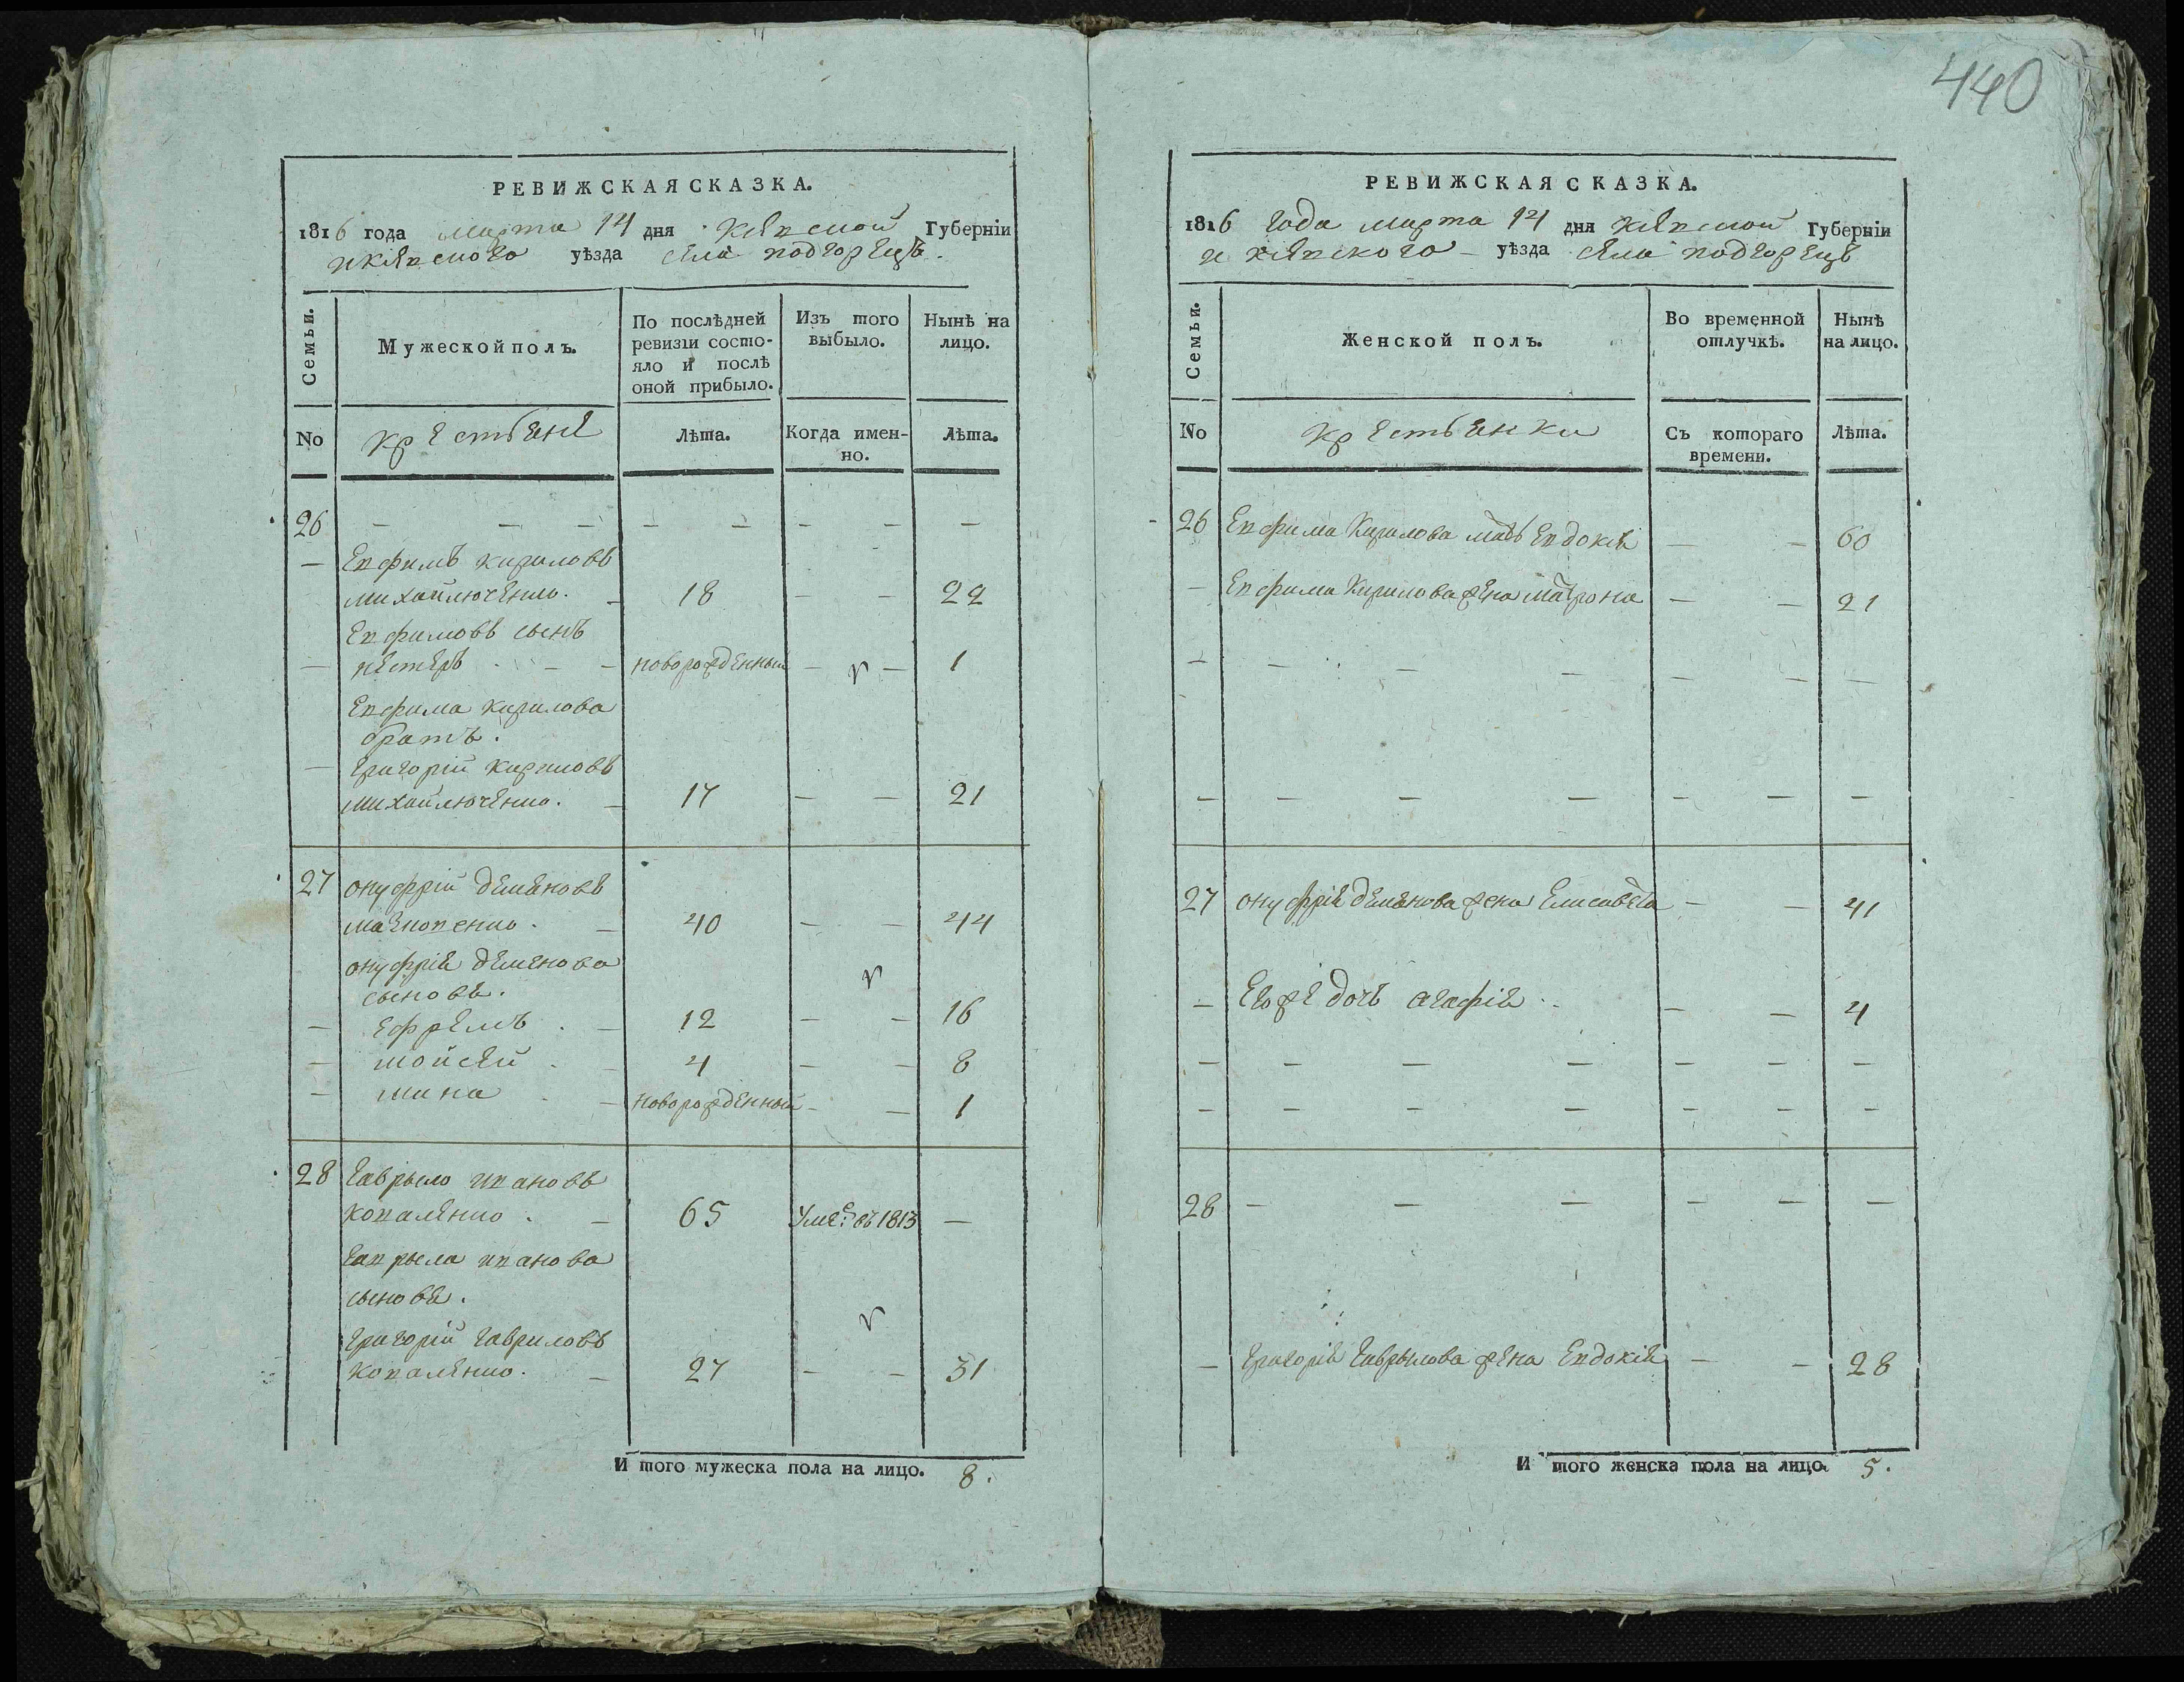 440
РЕВИЖСКАЯ СКАЗКА.
1816 года марта 14 дня Кіевской Губерніи
и Кіевского уѣзда села Подгорецъ.
Семьи.
Мужеской полъ.
По послѣдней ревизіи состояло и послѣ оной прибыло.
Изъ того выбыло.
Нынѣ на лицо.
No
крестьяне
Лѣта.
Когда именно.
Лѣта.
26 — — — — — — — —
— Евфимъ Кириловъ
Михайлюченко. — 18 — — 22
Евфимовъ сынъ
— Нестеръ — — новорожденный — — 1
Евфима Кирилова
братъ.
— Григорій Кириловъ
Михайлюченко. — 17 — — 21
27 Онуфрій Демяновъ
— 40 — — 44
Онуфрія Демянова
сыновя.
— Ефремъ . — 12 — — 16
— Мойсей . — 4 — — 8
— Мина . — новорожденный — — 1
28 Гаврыло Ивановъ
Коваленко . — 65 Умре: въ 1813 —
Гаврыла Иванова
сыновя.
Григорій Гавриловъ
Коваленко. — 27 — — 31
И того мужеска пола на лицо. 8.
РЕВИЖСКАЯ СКАЗКА.
1816 года марта 14 дня Кіевской Губерніи
и Кіевского — уѣзда села Подгорецъ
Семьи.
Женской полъ.
Во временной отлучкѣ.
Нынѣ на лицо.
No
крестьянки
Съ котораго времени.
Лѣта.
26 Евфима Кирилова мать Евдокія — — 60
— Евфима Кирилова жена Матрона — — 21
— — — — — — —
— — — — — — —
27 Онуфрія Демянова жена Елисавета — — 41
— Его же дочь Агафія . — — 4
— — — — — — —
— — — — — — —
28 — — — — — —
— Григорія Гаврылова жена Евдокія — — 28
И того женска пола на лицо. 5.